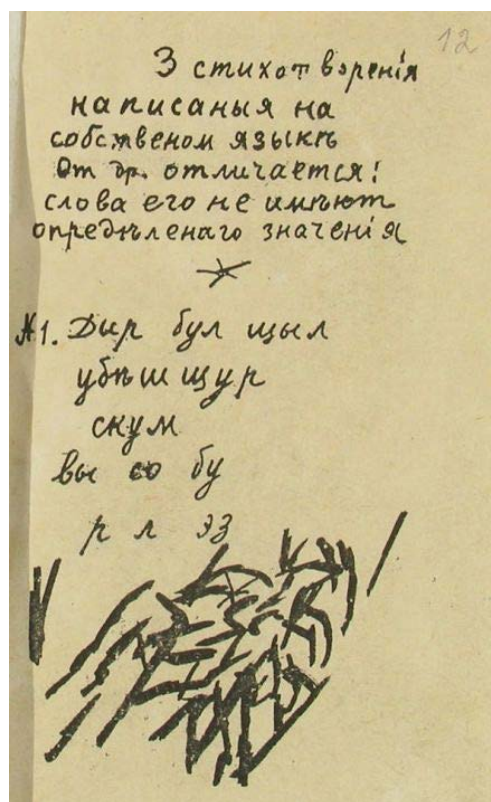 12
3 стихотворенія
написаныя на
собственом языкѣ
От др. отличается:
слова его не имѣют
опредѣленаго значенія
№1. Дыр бул щыл
убѣшщур
скум
вы со бу
р л эз